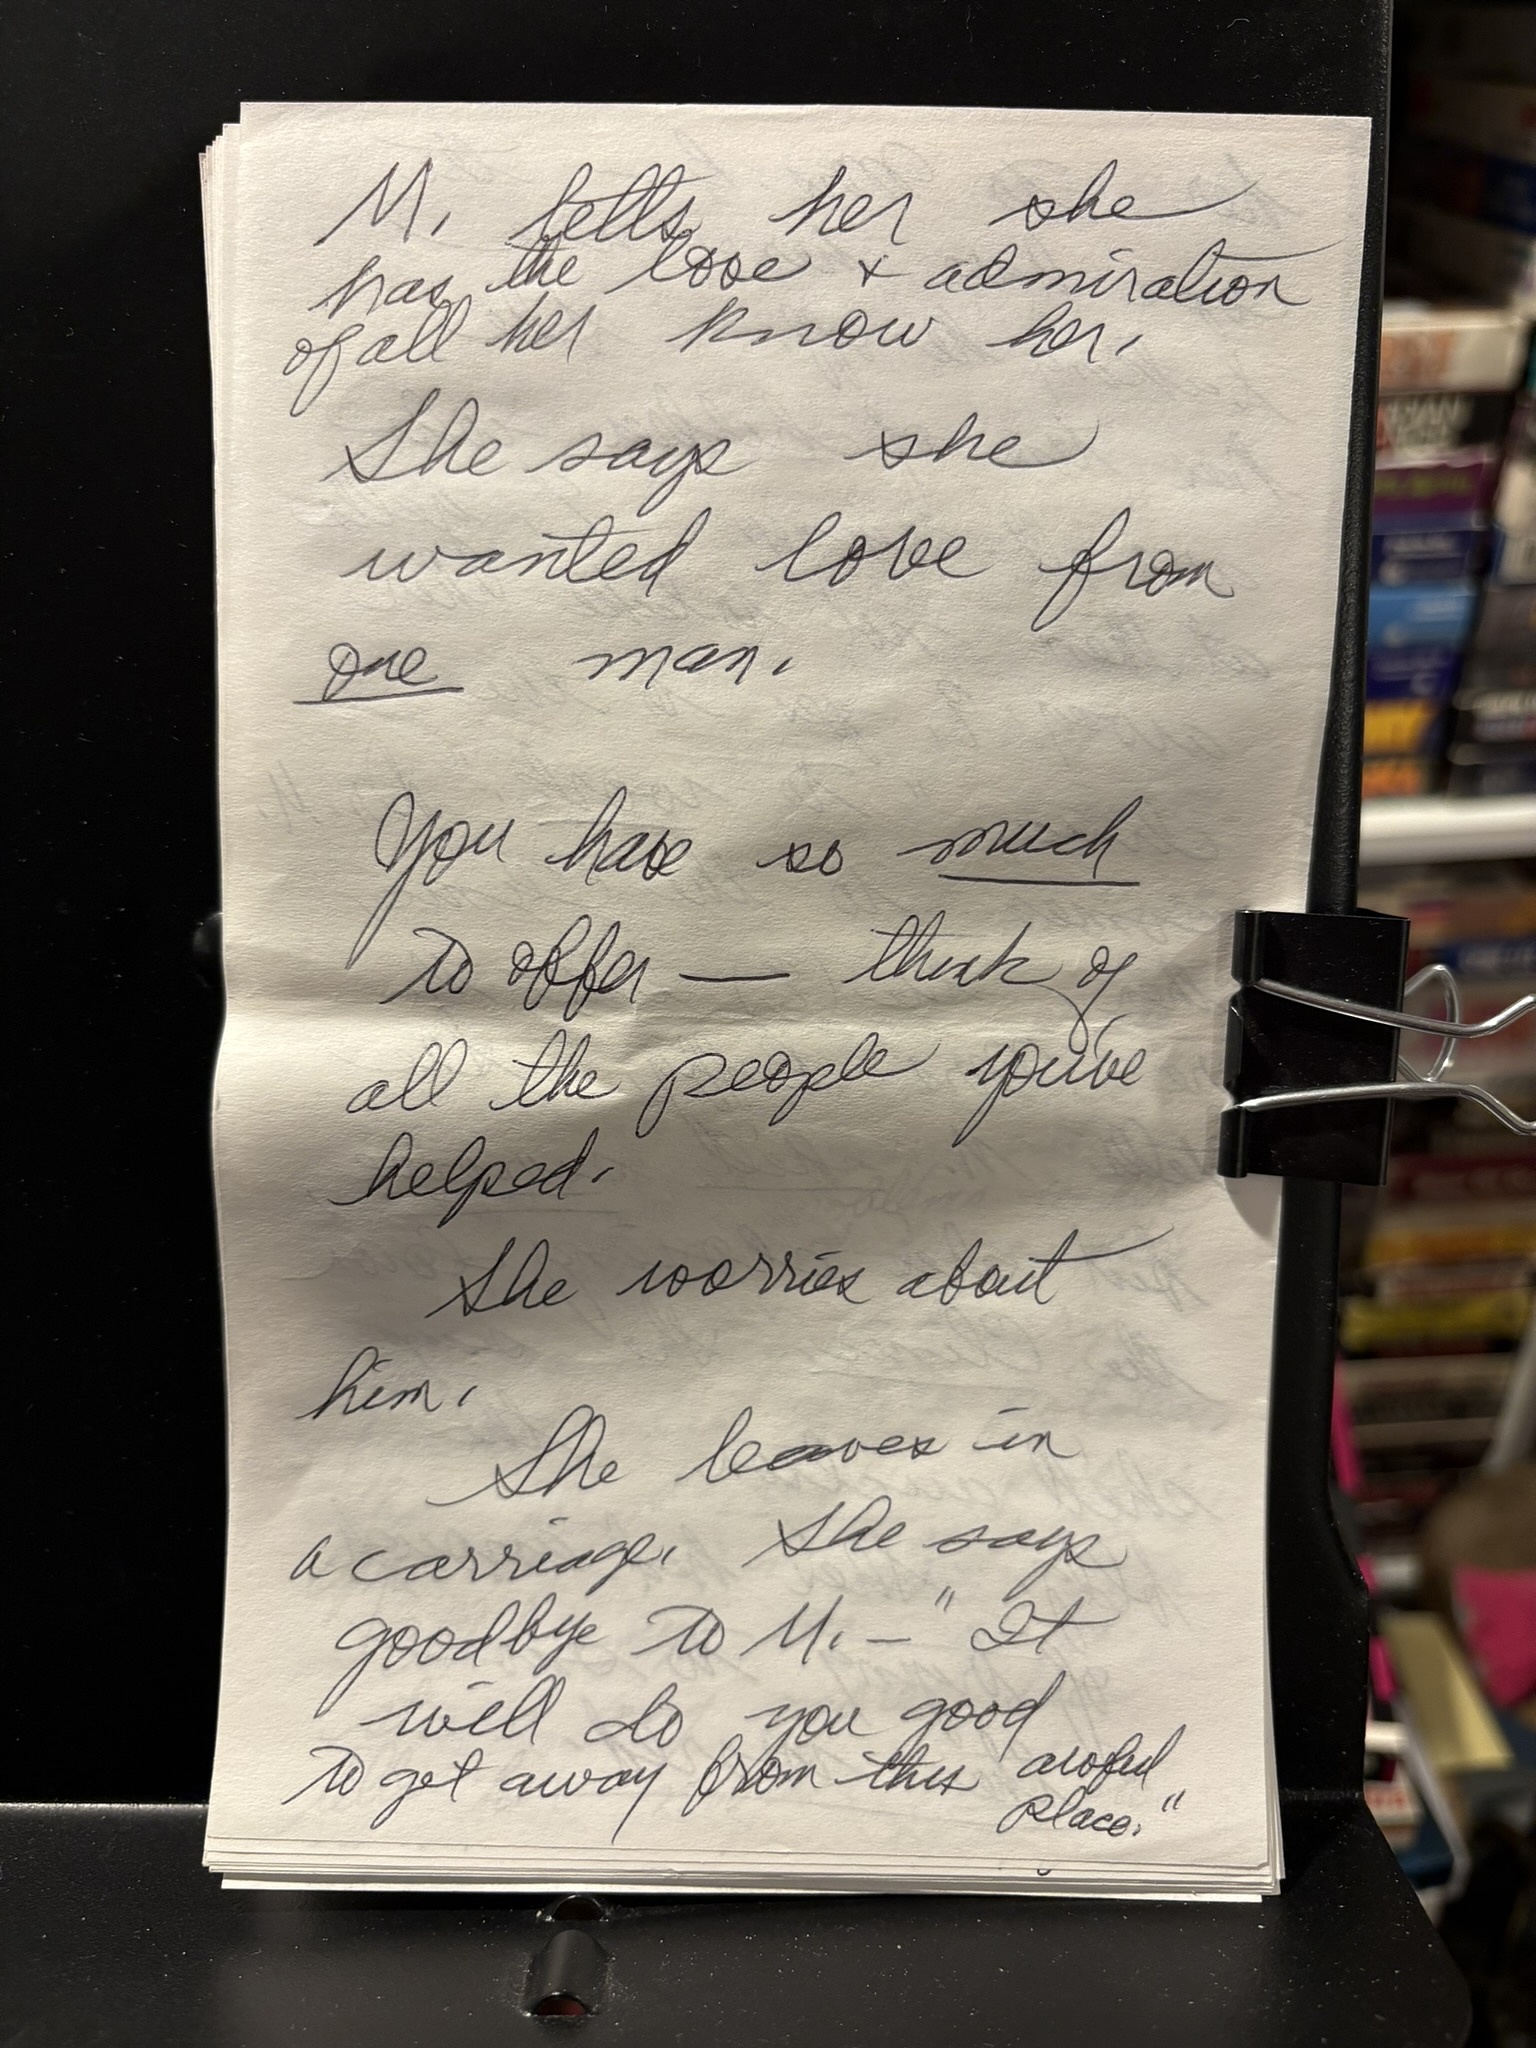 M. tells her she
has the love + admiration
of all her know her.
She says she
wanted love from
one man.
You have so much
to offer — think of
all the people you've
helped.
She worries about
him.
She leaves in
a carriage. She says
goodbye to M. — "It
will do you good
to get away from this awful
place."